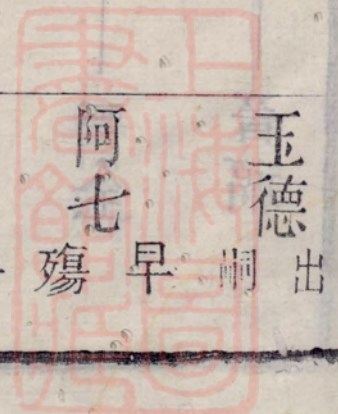 玉德
出嗣
阿七
早殤